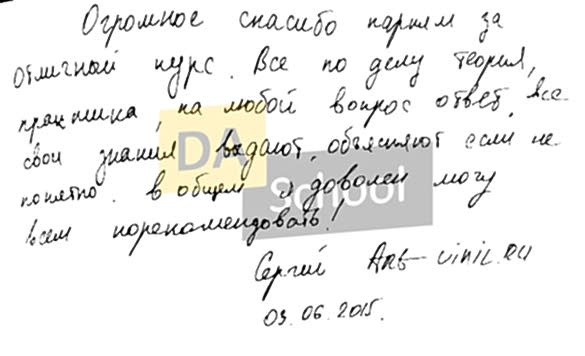 Огромное спасибо парням за
отличный курс. Все по делу теория,
практика, на любой вопрос ответ, все
свои знания выдают, объясняют если не
понятно. в общем я доволен могу
всем порекомендовать!
DA
School
Сергий Art-vinil.ru
03.06.2015.